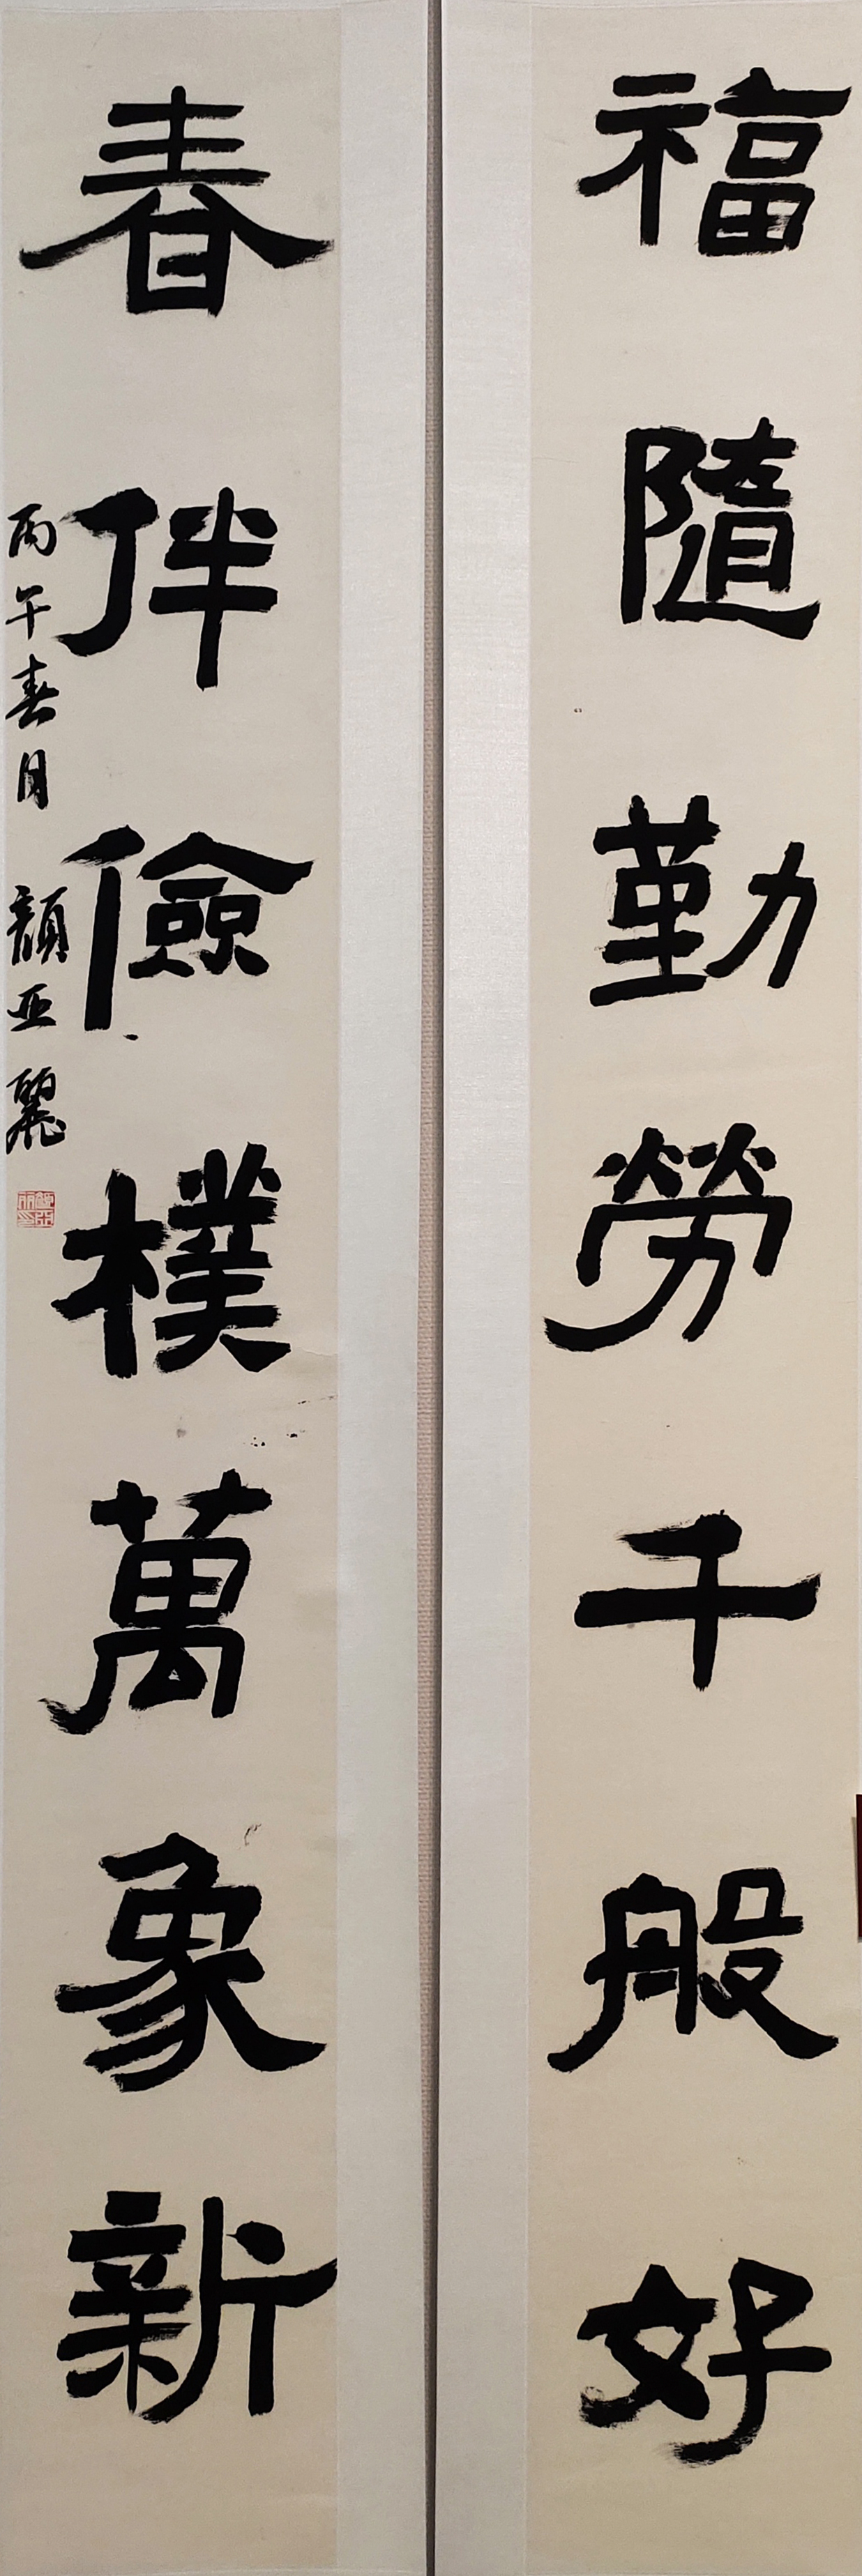 福隨勤勞千般好
春伴儉樸萬象新
丙午春月 顏亚麗